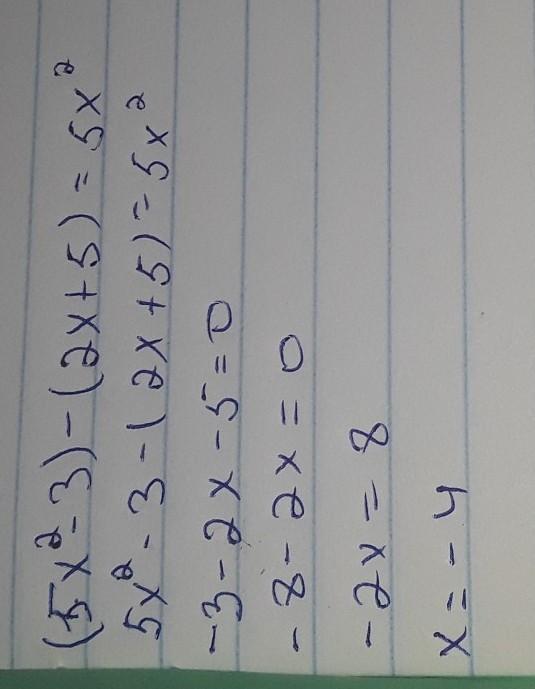 (5x²-3)-(2x+5)=5x²
5x²-3-(2x+5)=5x²
-3-2x-5=0
-8-2x=0
-2x=8
x=-4